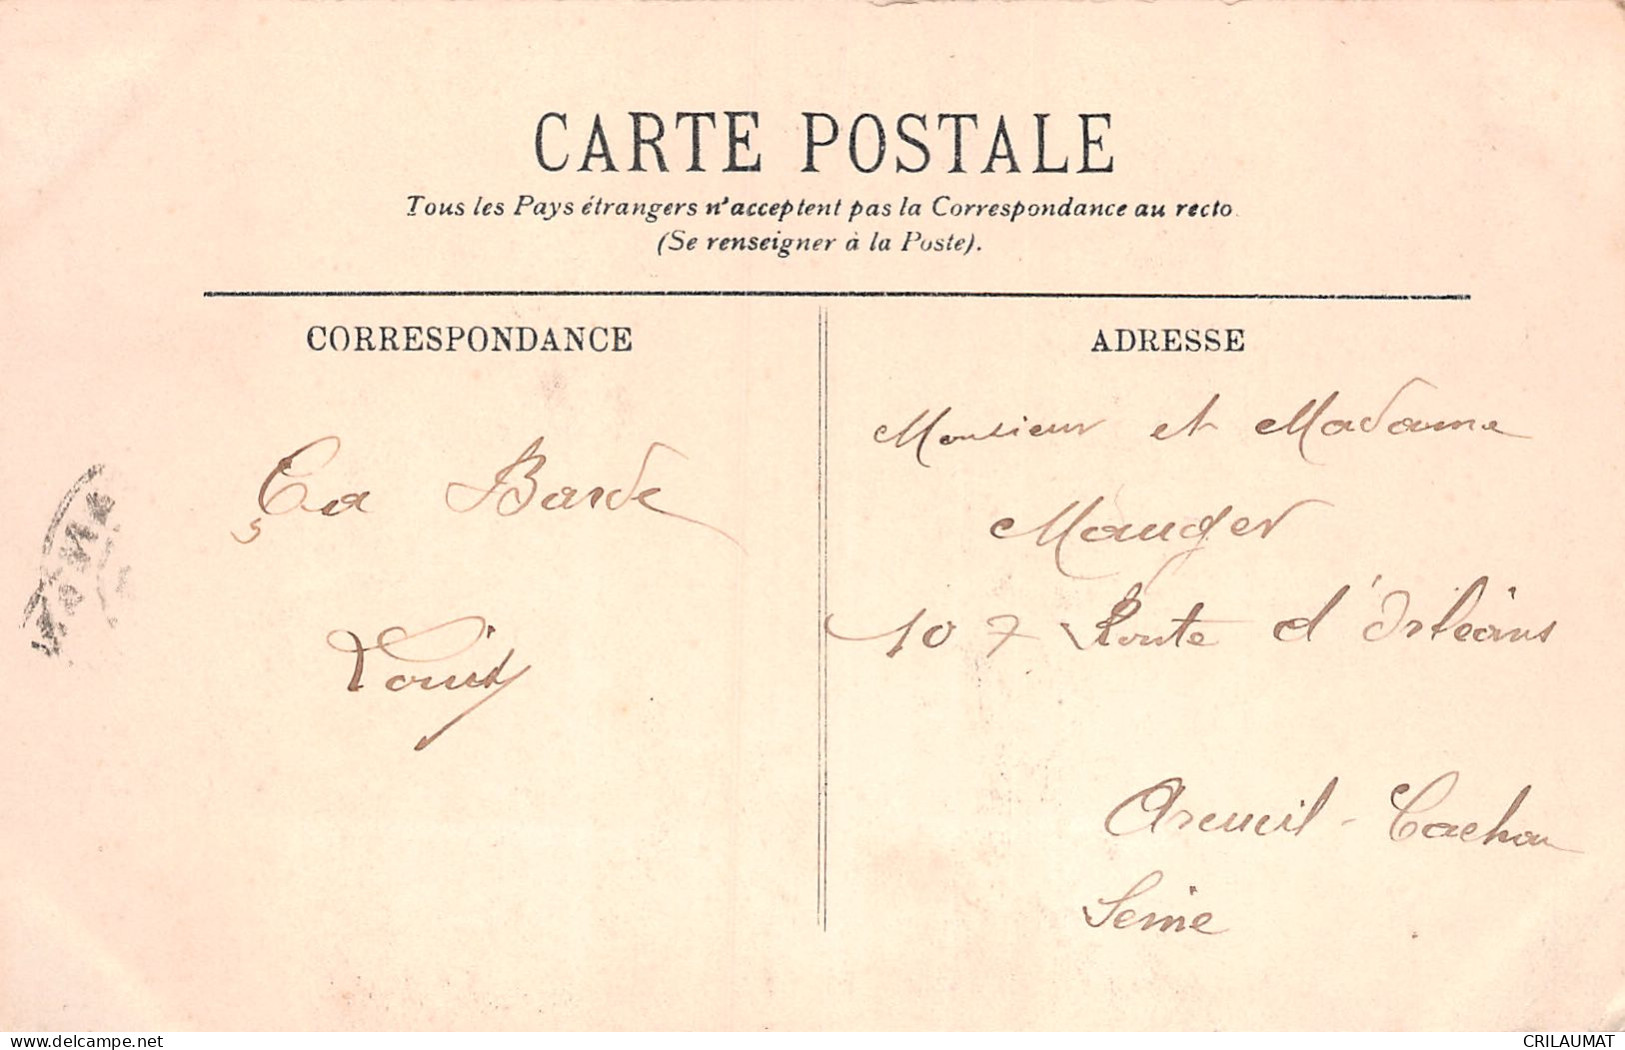 CARTE POSTALE
Tous les Pays étrangers n'acceptent pas la Correspondance au recto
(Se renseigner à la Poste).
CORRESPONDANCE
ADRESSE
Ça Barde
Louis
Monsieur et Madame
Mauger
107 Route d'Orléans
Arcueil-Cachan
Seine
www.delcampe.net
CRILAUMAT